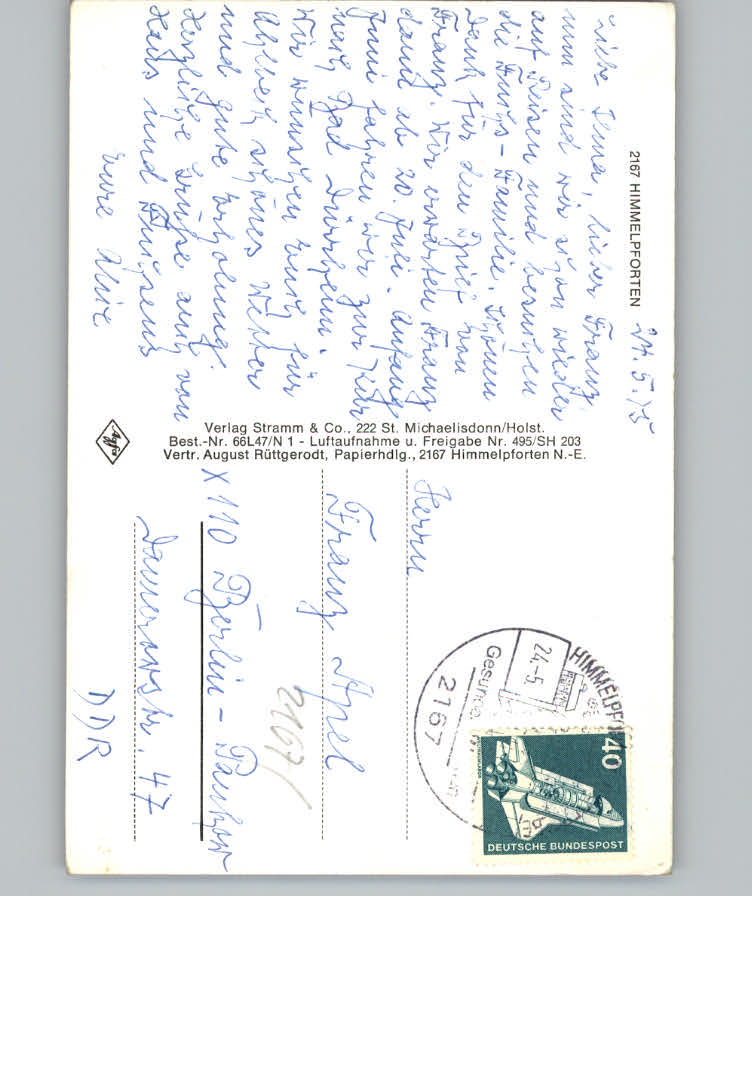 2167 HIMMELPFORTEN
24. 5. 75
Liebe Ilma, lieber Franz,
nun sind wir schon wieder
auf Reisen und besuchen
die Fuchs-Familie. Schönen
Dank für den Brief von
Franz. Wir erwarten Franz
damit ab 20. Juli. Anfang
Juni fahren wir zur Kur
nach Bad Dürrheim.
Wir wünschen Euch für
schönes Wetter
und gute Erholung.
Herzliche Grüße auch von
und
Eure
Verlag Stramm & Co., 222 St. Michaelisdonn/Holst.
Best.-Nr. 66L47/N 1 - Luftaufnahme u. Freigabe Nr. 495/SH 203
Vertr. August Rüttgerodt, Papierhdlg., 2167 Himmelpforten N.-E.
Agfa
Herrn
Franz Apel
X 110 Berlin - Pankow
47
DDR
2167/
HIMMELPFO
24.-5.
2167
40
DEUTSCHE BUNDESPOST